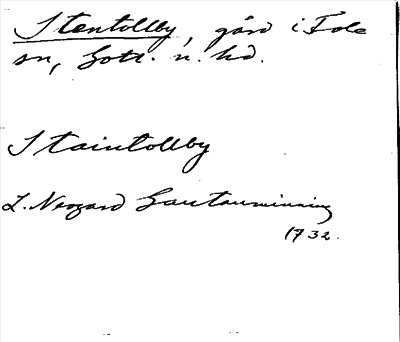 Stentollby, gård i Fole
sn, Gotl. n. hd.
Staintollby
L. Neogard Gautauminning
1732.